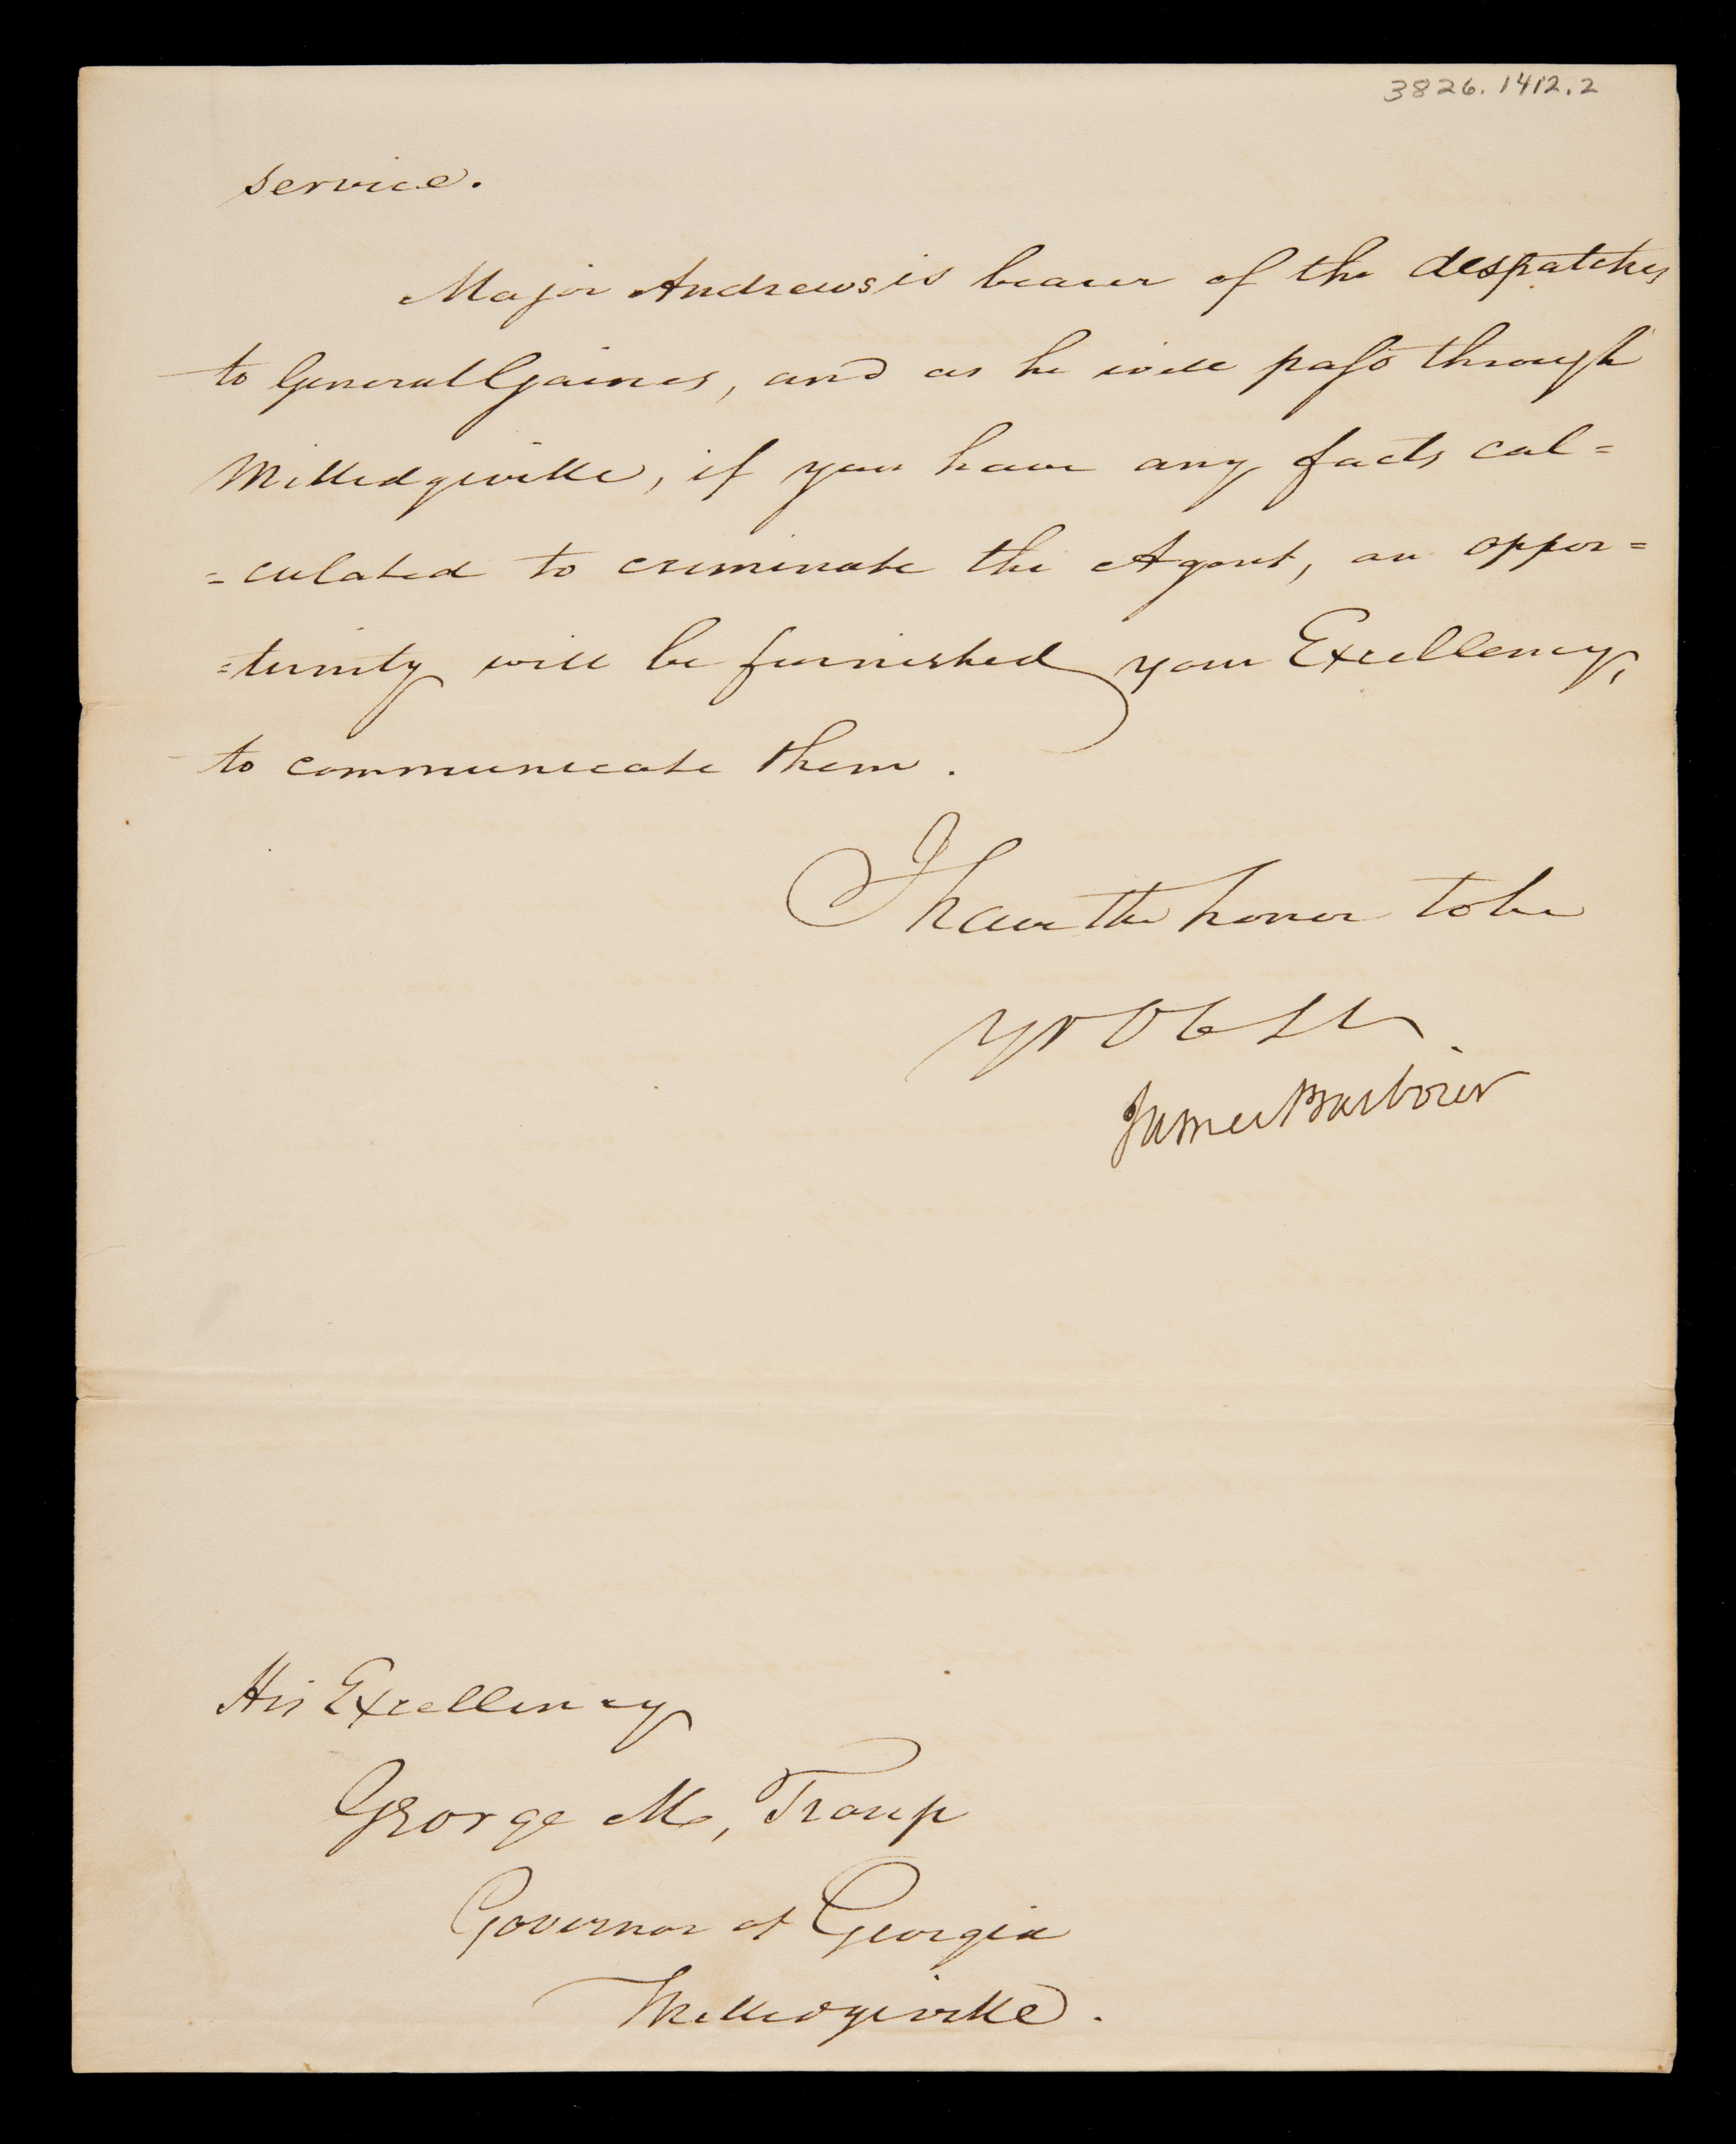 3826.1412.2
service.
Major Andrews is bearer of the despatches
to General Gaines, and as he will pass through
Milledgeville, if you have any facts cal=
=culated to criminate the Agent, an oppor=
=tunity will be furnished your Excellency,
to communicate them.
I have the honor to be
Yr Ob St
James Barbour
His Excellency
George M, Troup
Governor of Georgia
Milledgeville.